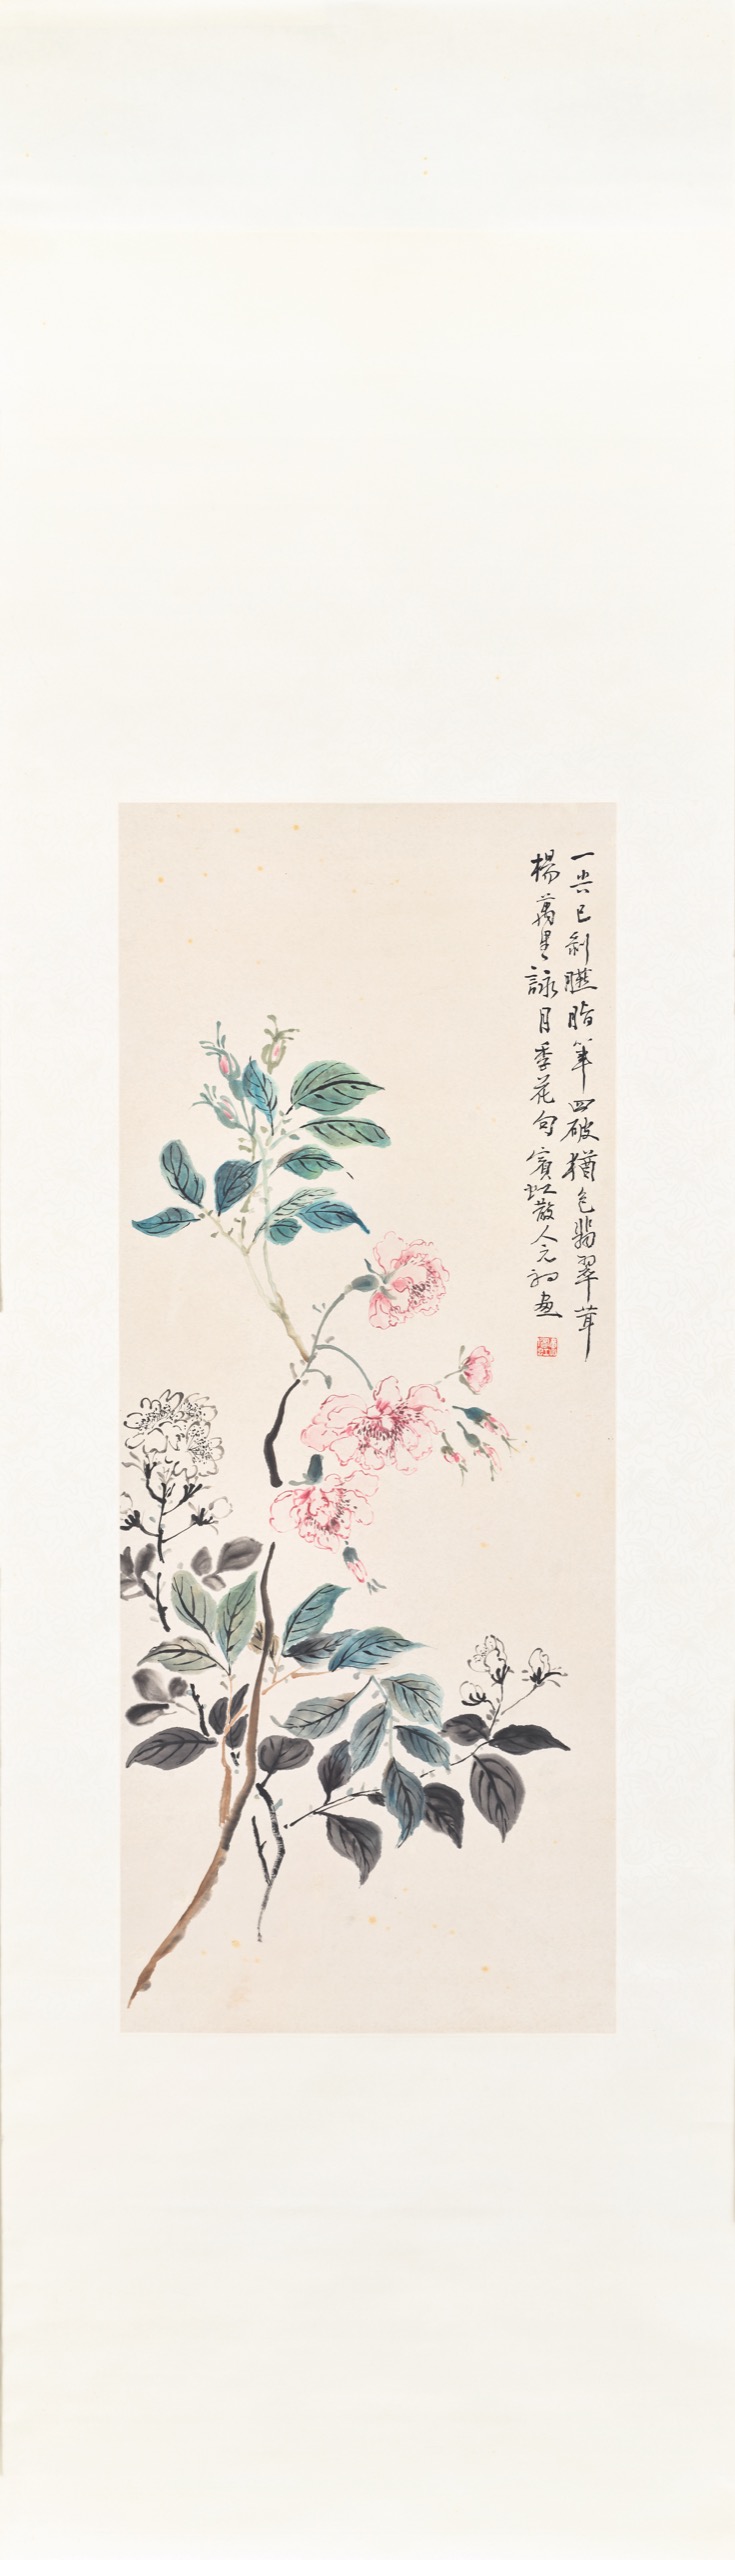 一尖已剝臙脂筆四破猶包翡翠茸
楊萬里詠月季花句賓虹散人元初畫